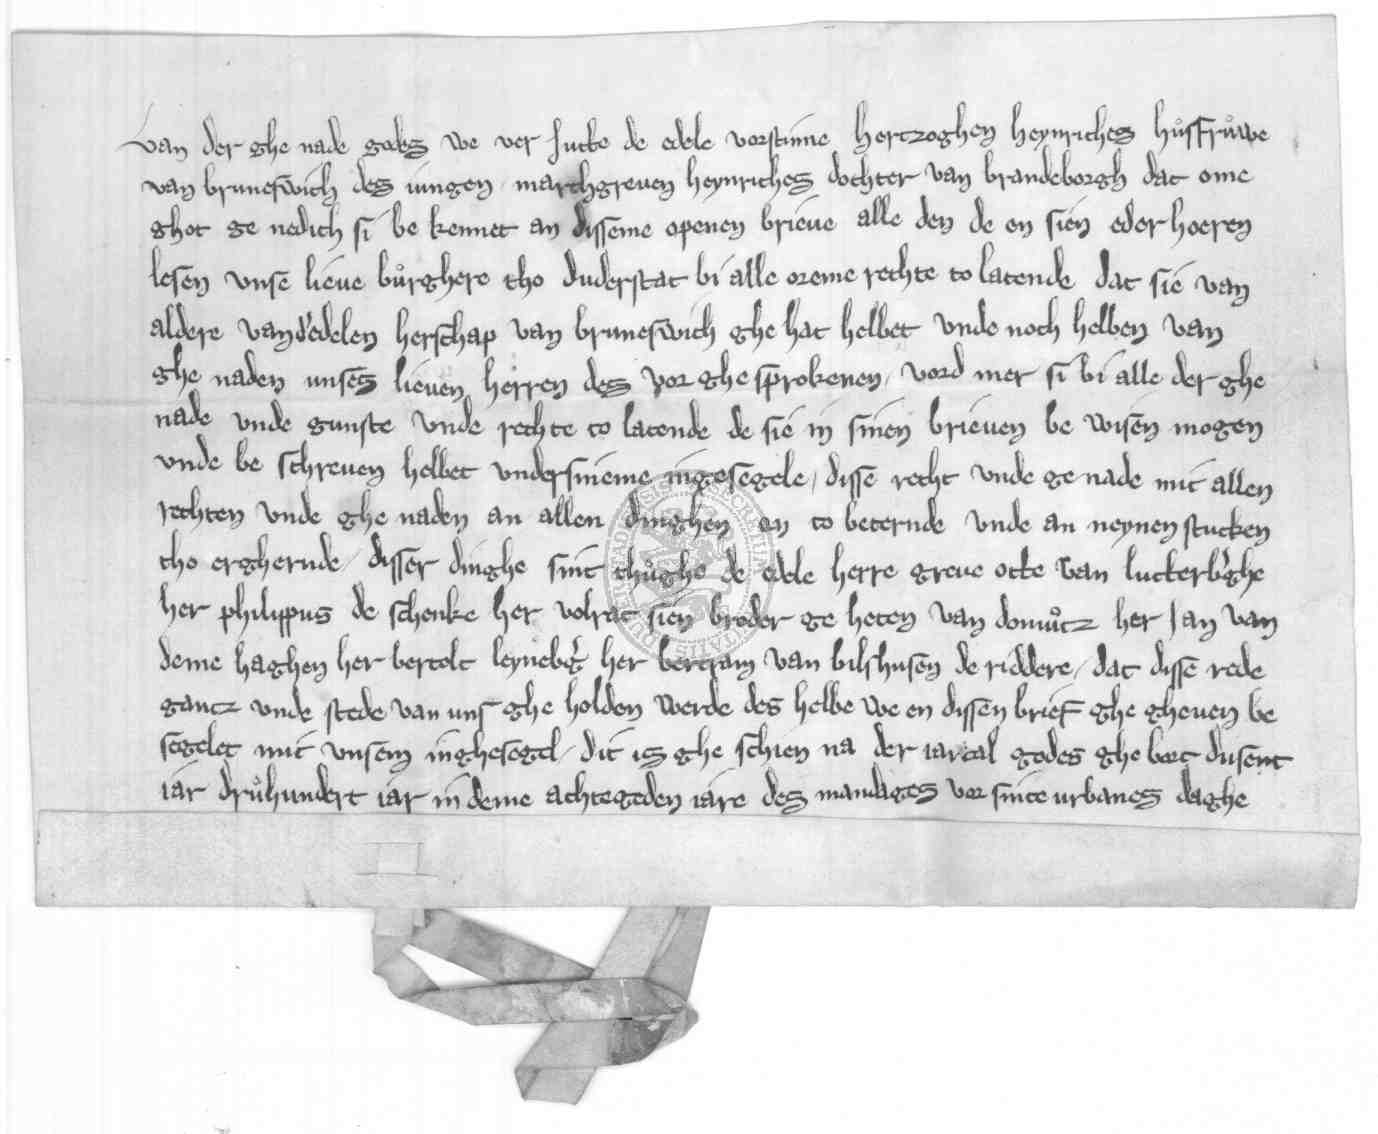 Van der ghe nade godes we ver Jutte de edele vorstinne hertzoghen heynriches hůsfrůwe
van bruneswich des iungen marchgreven heynriches dochter van brandeborgh dat ome
ghot ge nedich si be kennet an disseme openen brieve alle den de en sien eder hoeren
lesen unse lieve bůrghere tho duderstat bi alle oreme rechte to latende dat sie van
aldere vand'edelen herschap van bruneswich ghe hat hebbet unde noch hebben van
ghe naden unses lieven herren des vor ghe sprokenen, vord mer si bi alle der ghe
nade unde gunste unde rechte to latende de sie in sinen brieven be wisen mogen
unde be schreven hebbet undersineme ingesegele, disse recht unde ge nade mit allen
rechten unde ghe naden an allen dinghen en to beternde unde an neynen stucken
tho erghernde, disser dinghe sint thůghe de edele herre greve otte van lutterb'ghe
her philippus de schenke her volrat sien broder ge heten van domůtz her Jan van
deme haghen her bertolt leyneb'g her bertram van bilshusen de riddere, dat disse rede
gantz unde stede van uns ghe holden werde des hebbe we en dissen brief ghe gheven be
segelet mit unsem inghesegel, dit is ghe schien na der iartal godes ghe bort dusent
iar drůhundert iar in deme achtegeden iare des mandages vor sinte urbanes daghe